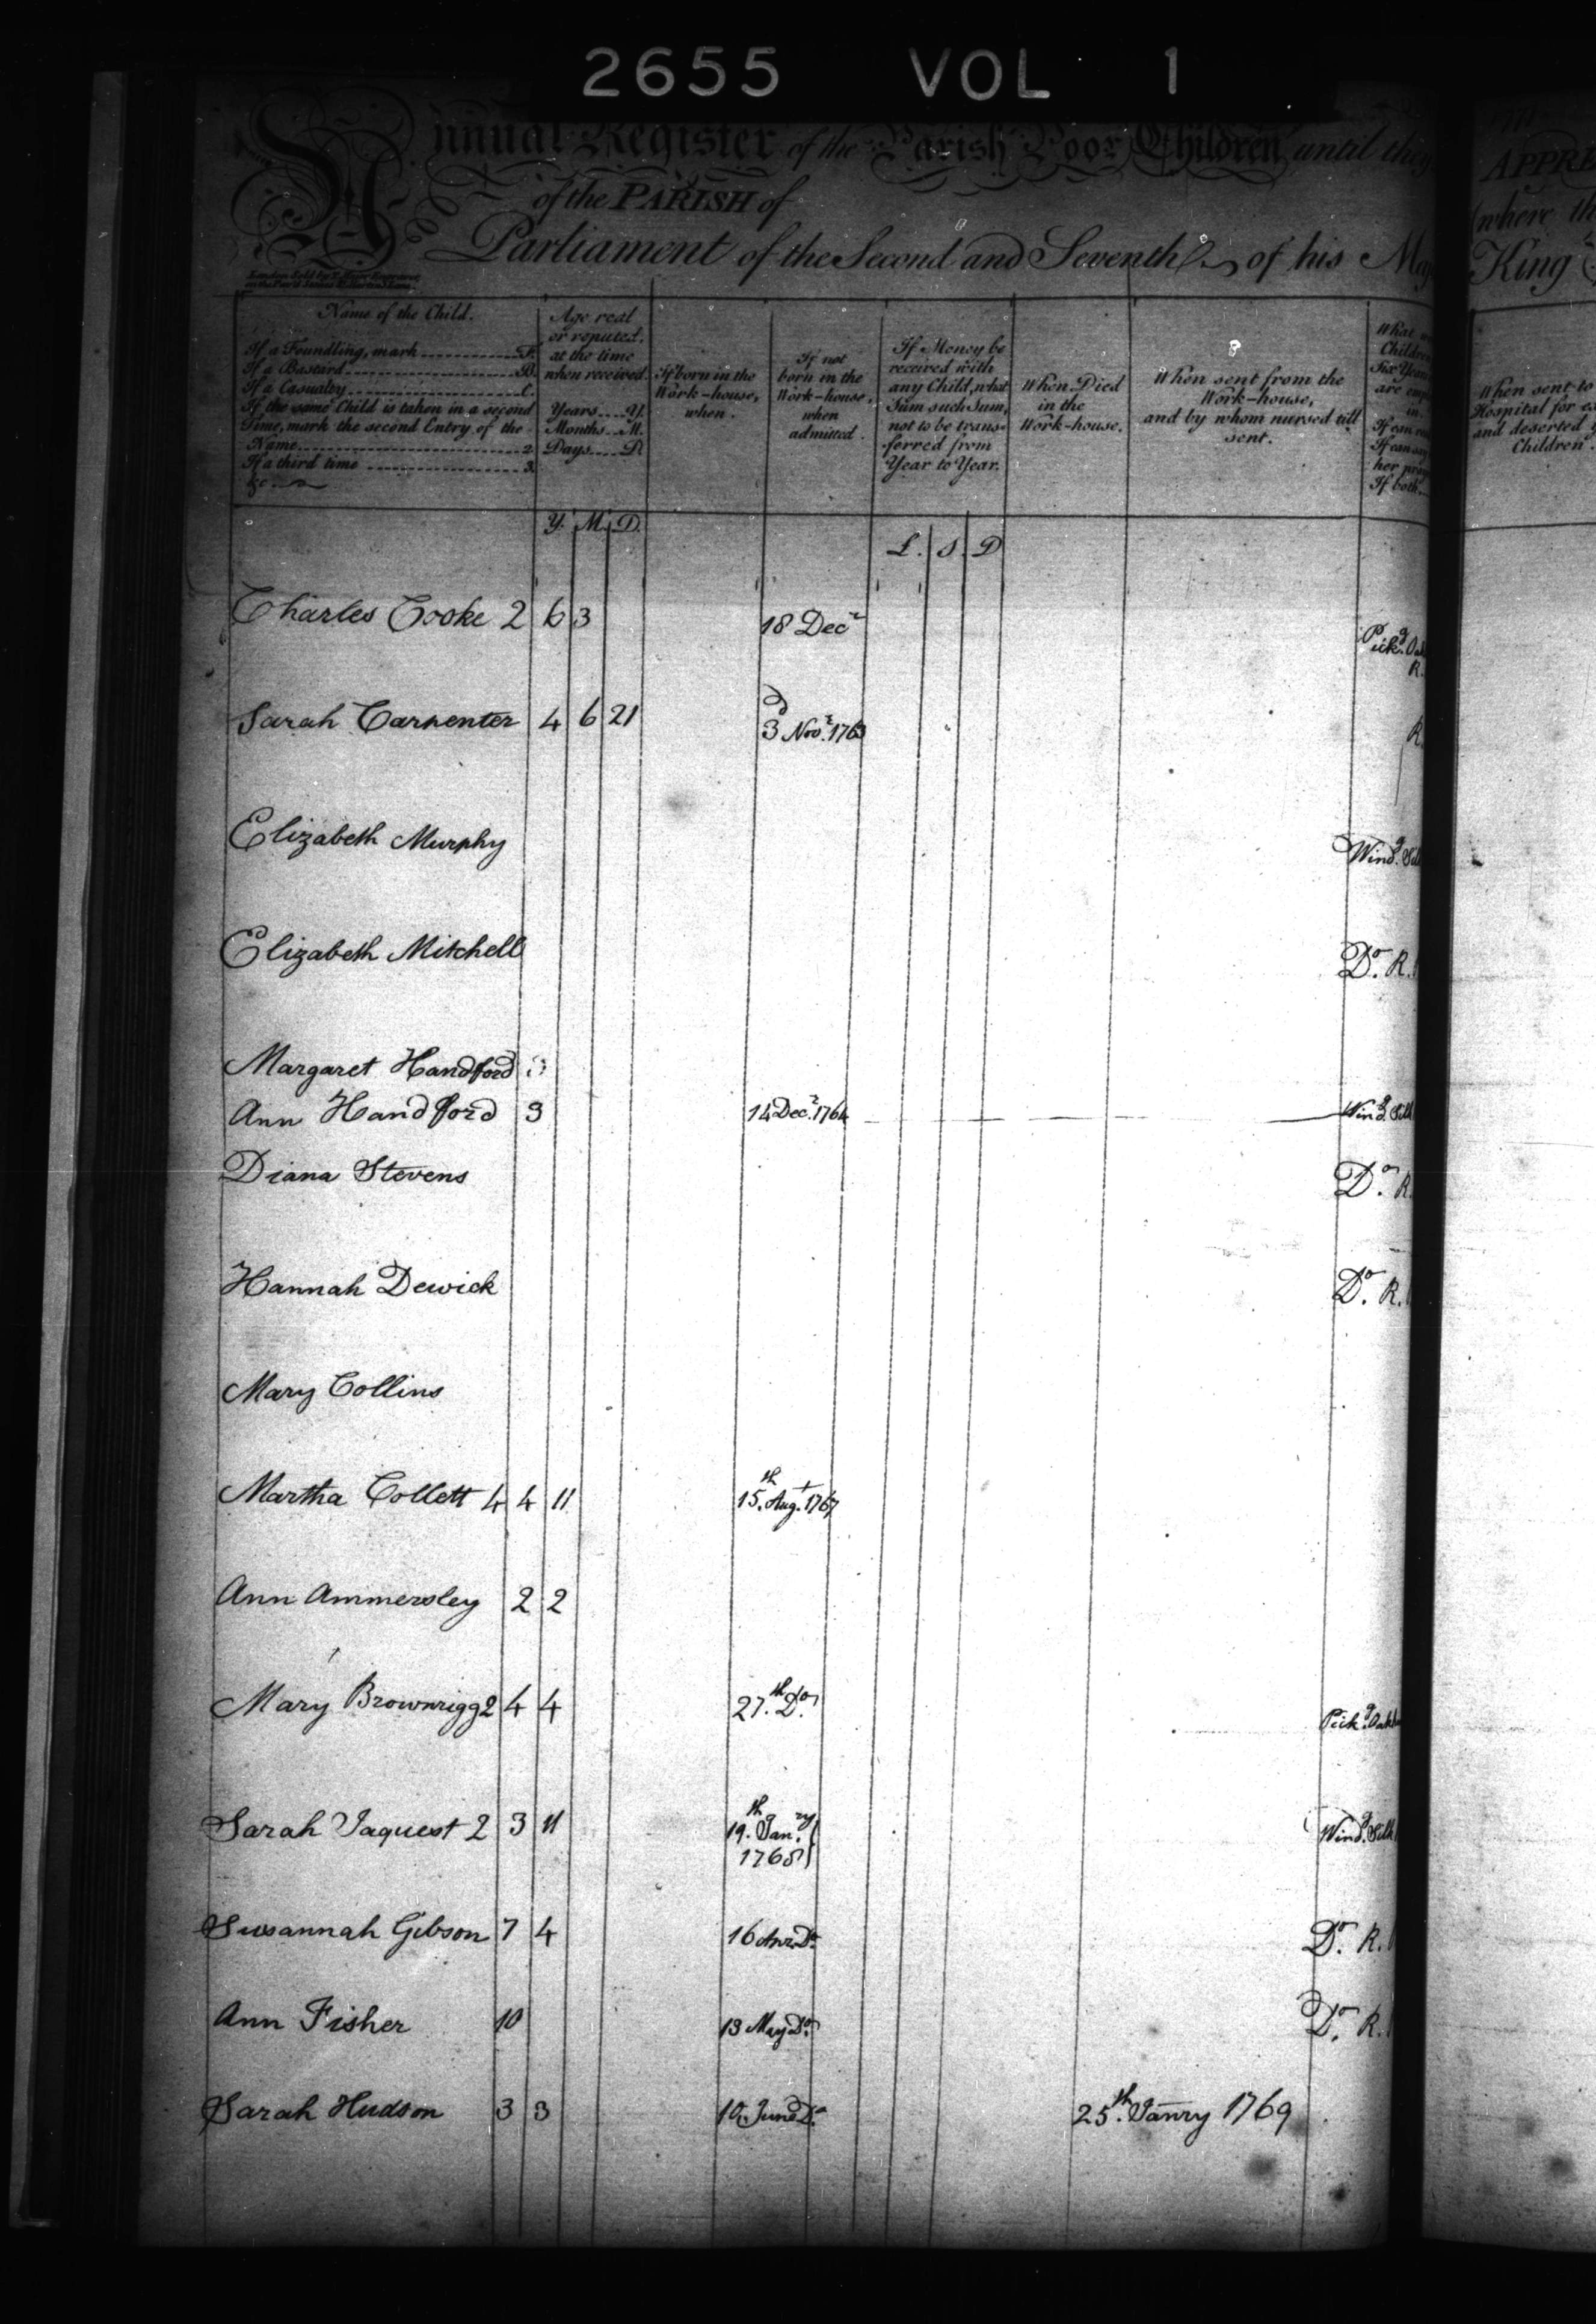 2655 VOL 1
Annual Register of the Parish Poor Children until they
of the PARISH of
Parliament of the Second and Seventh of his Maj
Name of the Child.
If a Foundling, mark F.
If a Bastard B.
If a Casualty C.
If the same Child is taken in a second
Time, mark the second Entry of the
Name 2.
If a third time 3.
&c
Age real
or reputed,
at the time
when received.
Years Y.
Months M.
Days D.
If born in the
Work-house,
when.
If not
born in the
Work-house,
when
admitted.
If Money be
received with
any Child, what
Sum such Sum,
not to be trans=
ferred from
Year to Year.
When Died
in the
Work-house.
When sent from the
Work-house,
and by whom nursed till
sent.
What
Children
Six Years
are emp
in.
If can
If can
her
If both
APPRE
where th
King
When sent to
Hospital for
and deserted
Children.
Y. M. D.
L. S. D
Charles Cooke 2 6 3 18 Decr Pickg. Oa
R.
Sarah Carpenter 4 6 21 3d Novr. 1763 R.
Elizabeth Murphy Windg. Sil
Elizabeth Mitchell Do. R.
Margaret Handford
Ann Handford 3 14 Decr. 1764 Windg. Silk
Diana Stevens Do. R.
Hannah Dewick Do. R.
Mary Collins
Martha Collett 4 4 11 15th. Augt. 1767
Ann Ammersley 2 2
Mary Brownrigg 2 4 4 27th. Do. Pickg. Oak
Sarah Jaquest 2 3 11 19th. Janry.
1768 Windg. Silk
Susannah Gibson 7 4 16 Apr. Do. Do. R.
Ann Fisher 10 13 May Do. Do. R.
Sarah Hudson 3 3 10 June Do. 25th. Janry 1769